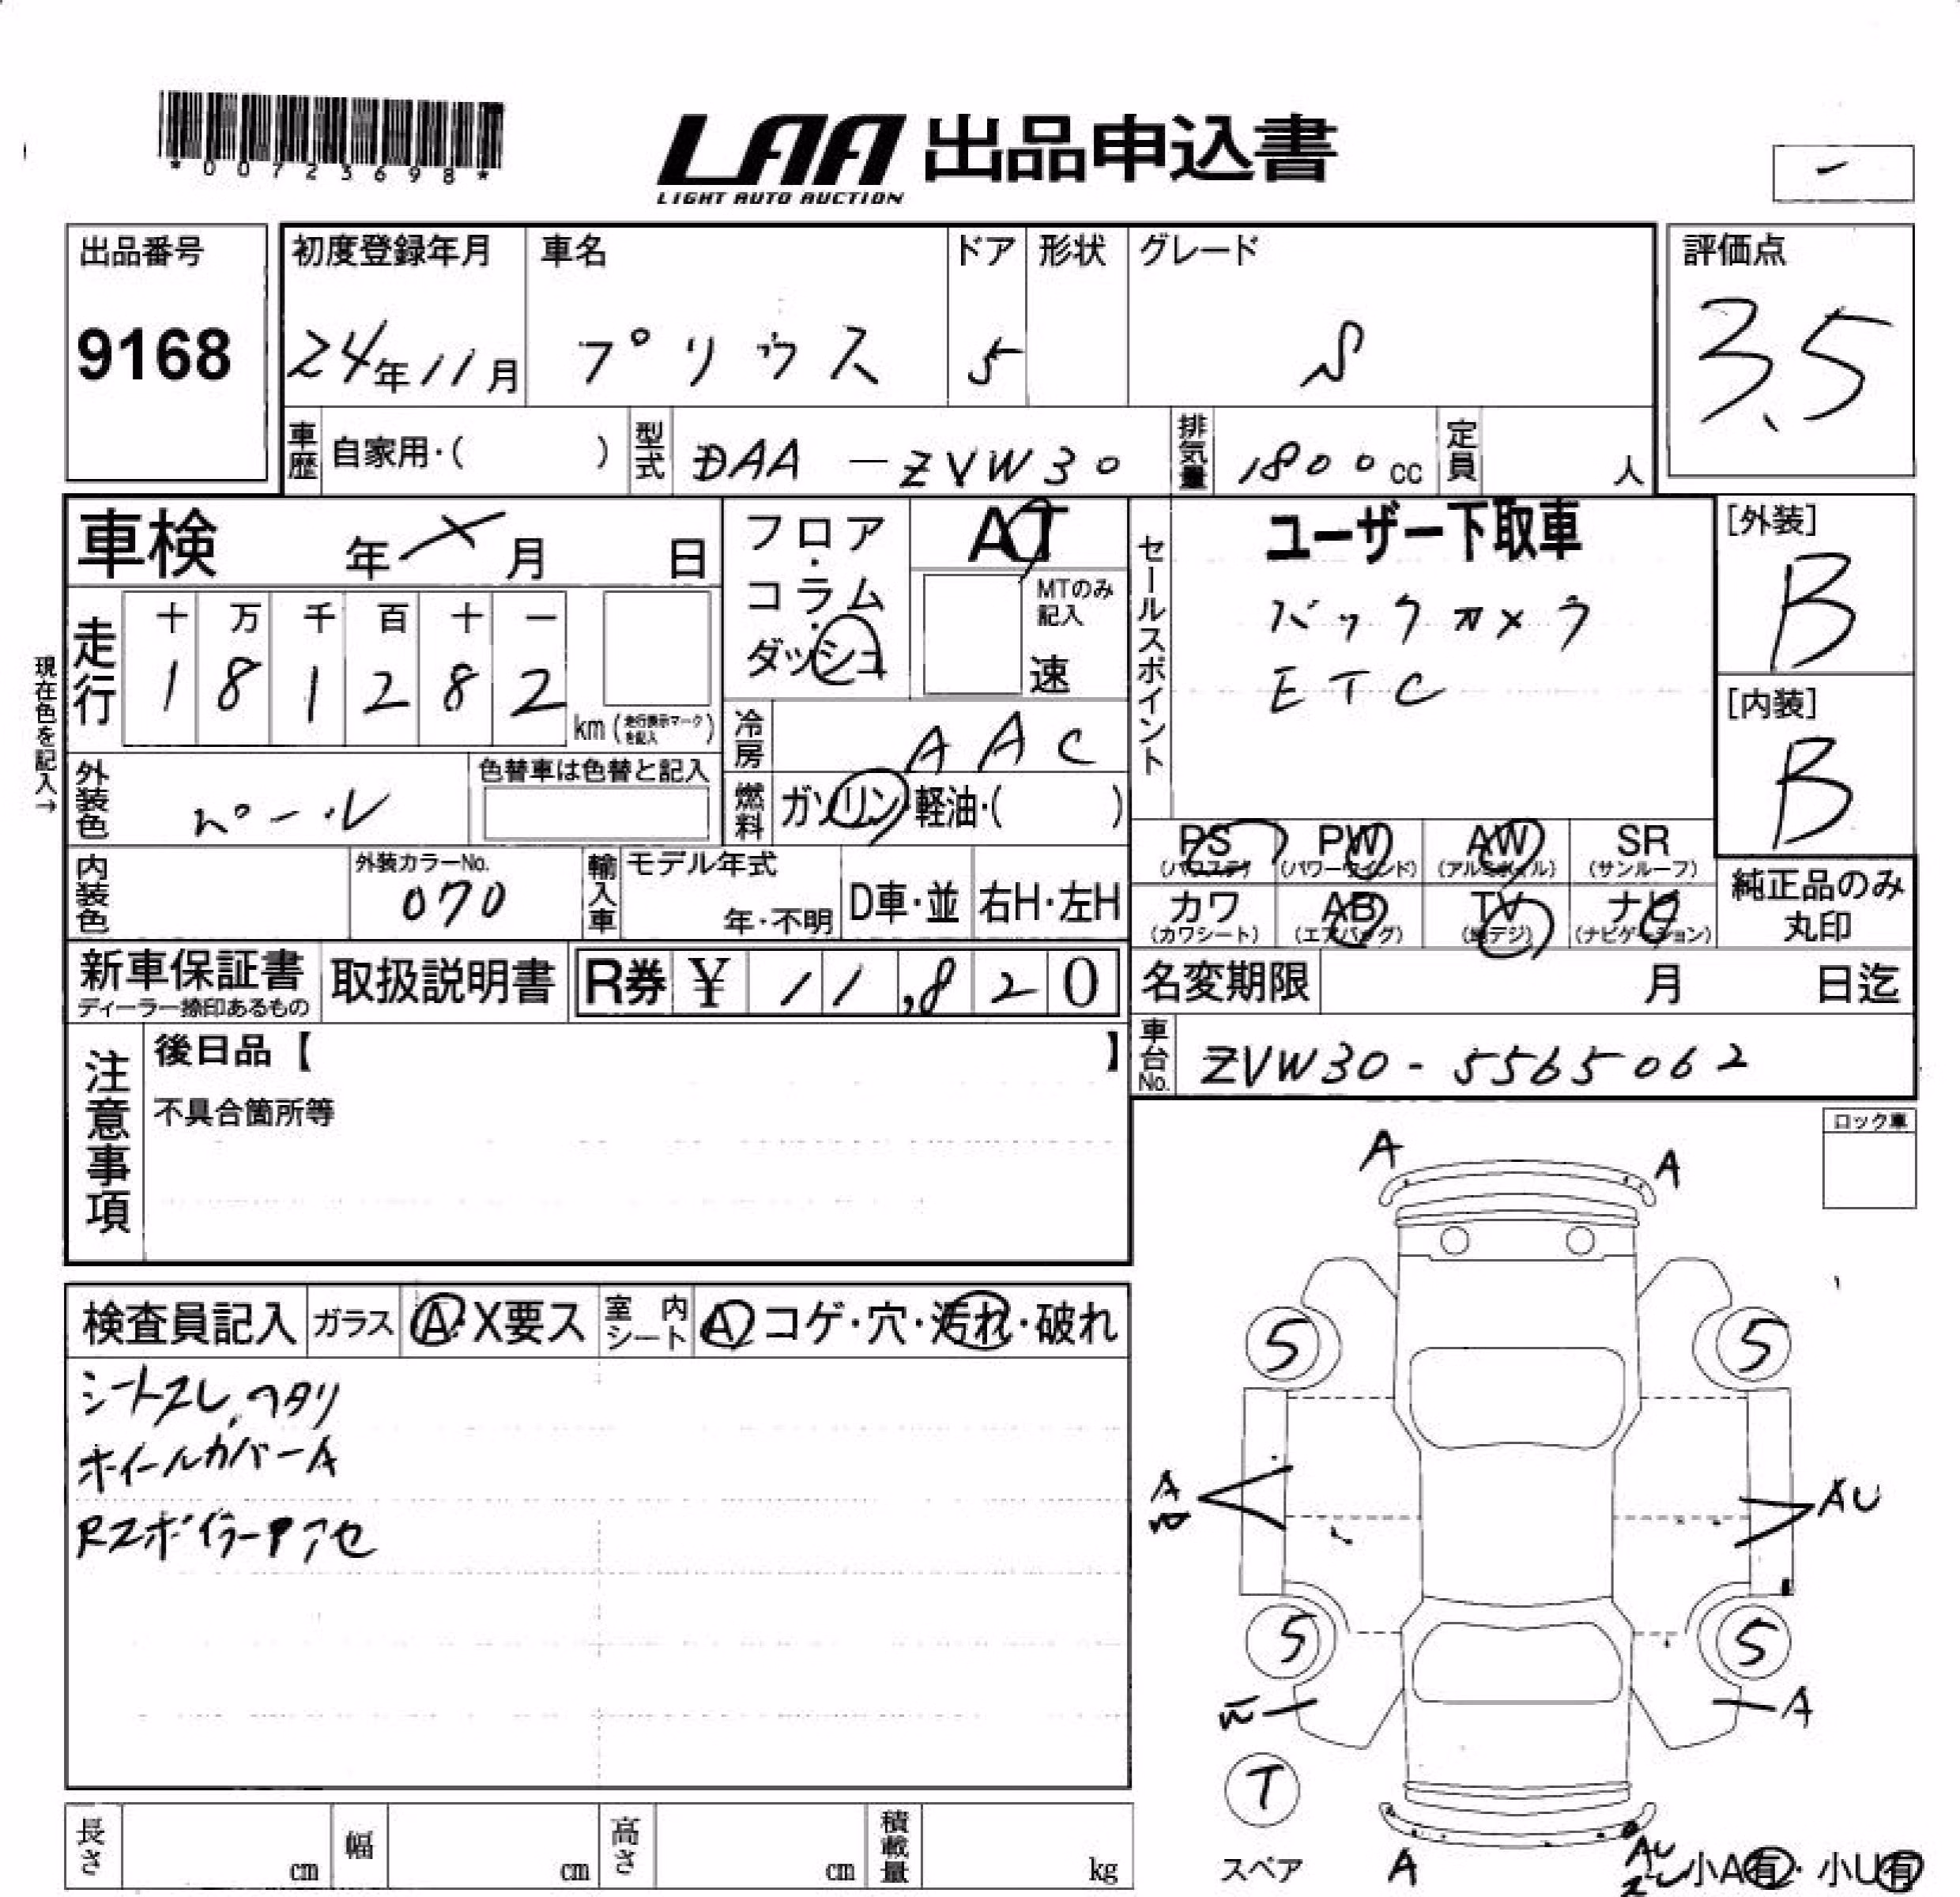 *00723698*
LAA 出品申込書
LIGHT AUTO AUCTION
出品番号
9168
初度登録年月
24年11月
車名
プリウス
ドア
5
形状
グレード
S
評価点
3.5
車歴 自家用・( )
型式 DAA-ZVW30
排気量 1800cc
定員 人
車検 年 × 月 日
現在色を記入→
走行
十 万 千 百 十 一
1 8 1 2 8 2
km (走行表示マークを記入)
フロア・コラム・ダッシュ
AT
MTのみ記入
速
冷房 AAC
燃料 ガソリン・軽油・( )
セールスポイント
ユーザー下取車
バックカメラ
ETC
[外装]
B
[内装]
B
外装色 パール
色替車は色替と記入
内装色
外装カラーNo.
070
輸入車
モデル年式
年・不明
D車・並
右H・左H
PS (パワステ)
PW (パワーウインド)
AW (アルミホイル)
SR (サンルーフ)
カワ (カワシート)
AB (エアバッグ)
TV (地デジ)
ナビ (ナビゲーション)
純正品のみ丸印
新車保証書
ディーラー捺印あるもの
取扱説明書
R券 ¥ 11,820
名変期限 月 日迄
車台No. ZVW30-5565062
注意事項
後日品【 】
不具合箇所等
ロック車
検査員記入
ガラス A・X要ス
室内シート A コゲ・穴・汚れ・破れ
シートスレ,ヘタリ
ホイールカバーA
A
A
5
5
A
AU
5
5
A
T
スペア
A
AU
小A有・小U有
長さ cm
幅 cm
高さ cm
積載量 kg